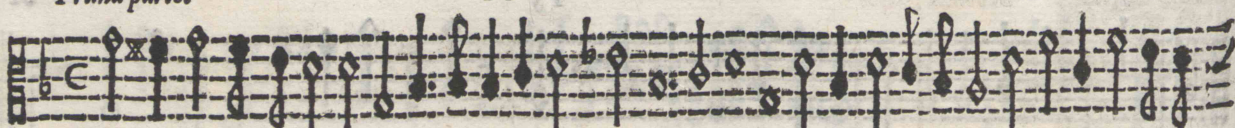 Prima partes